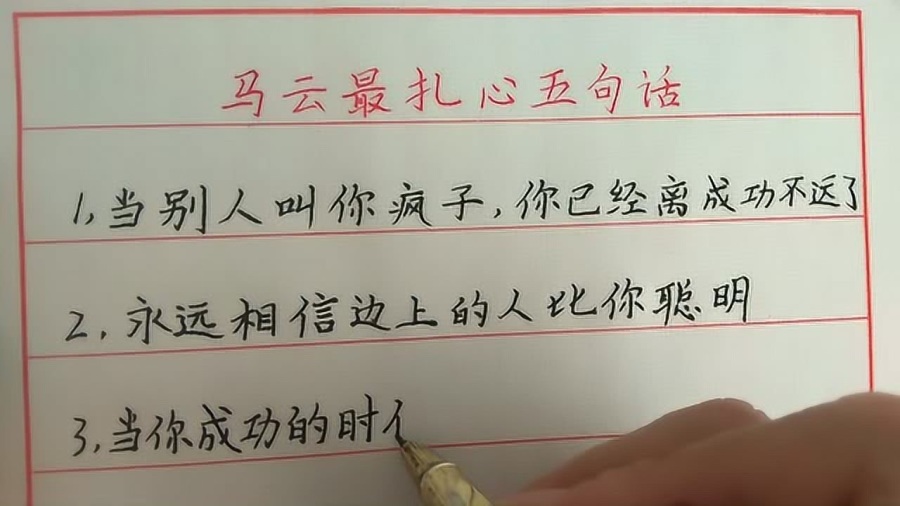 马云最扎心五句话
1,当别人叫你疯子,你已经离成功不远了
2,永远相信边上的人比你聪明
3,当你成功的时